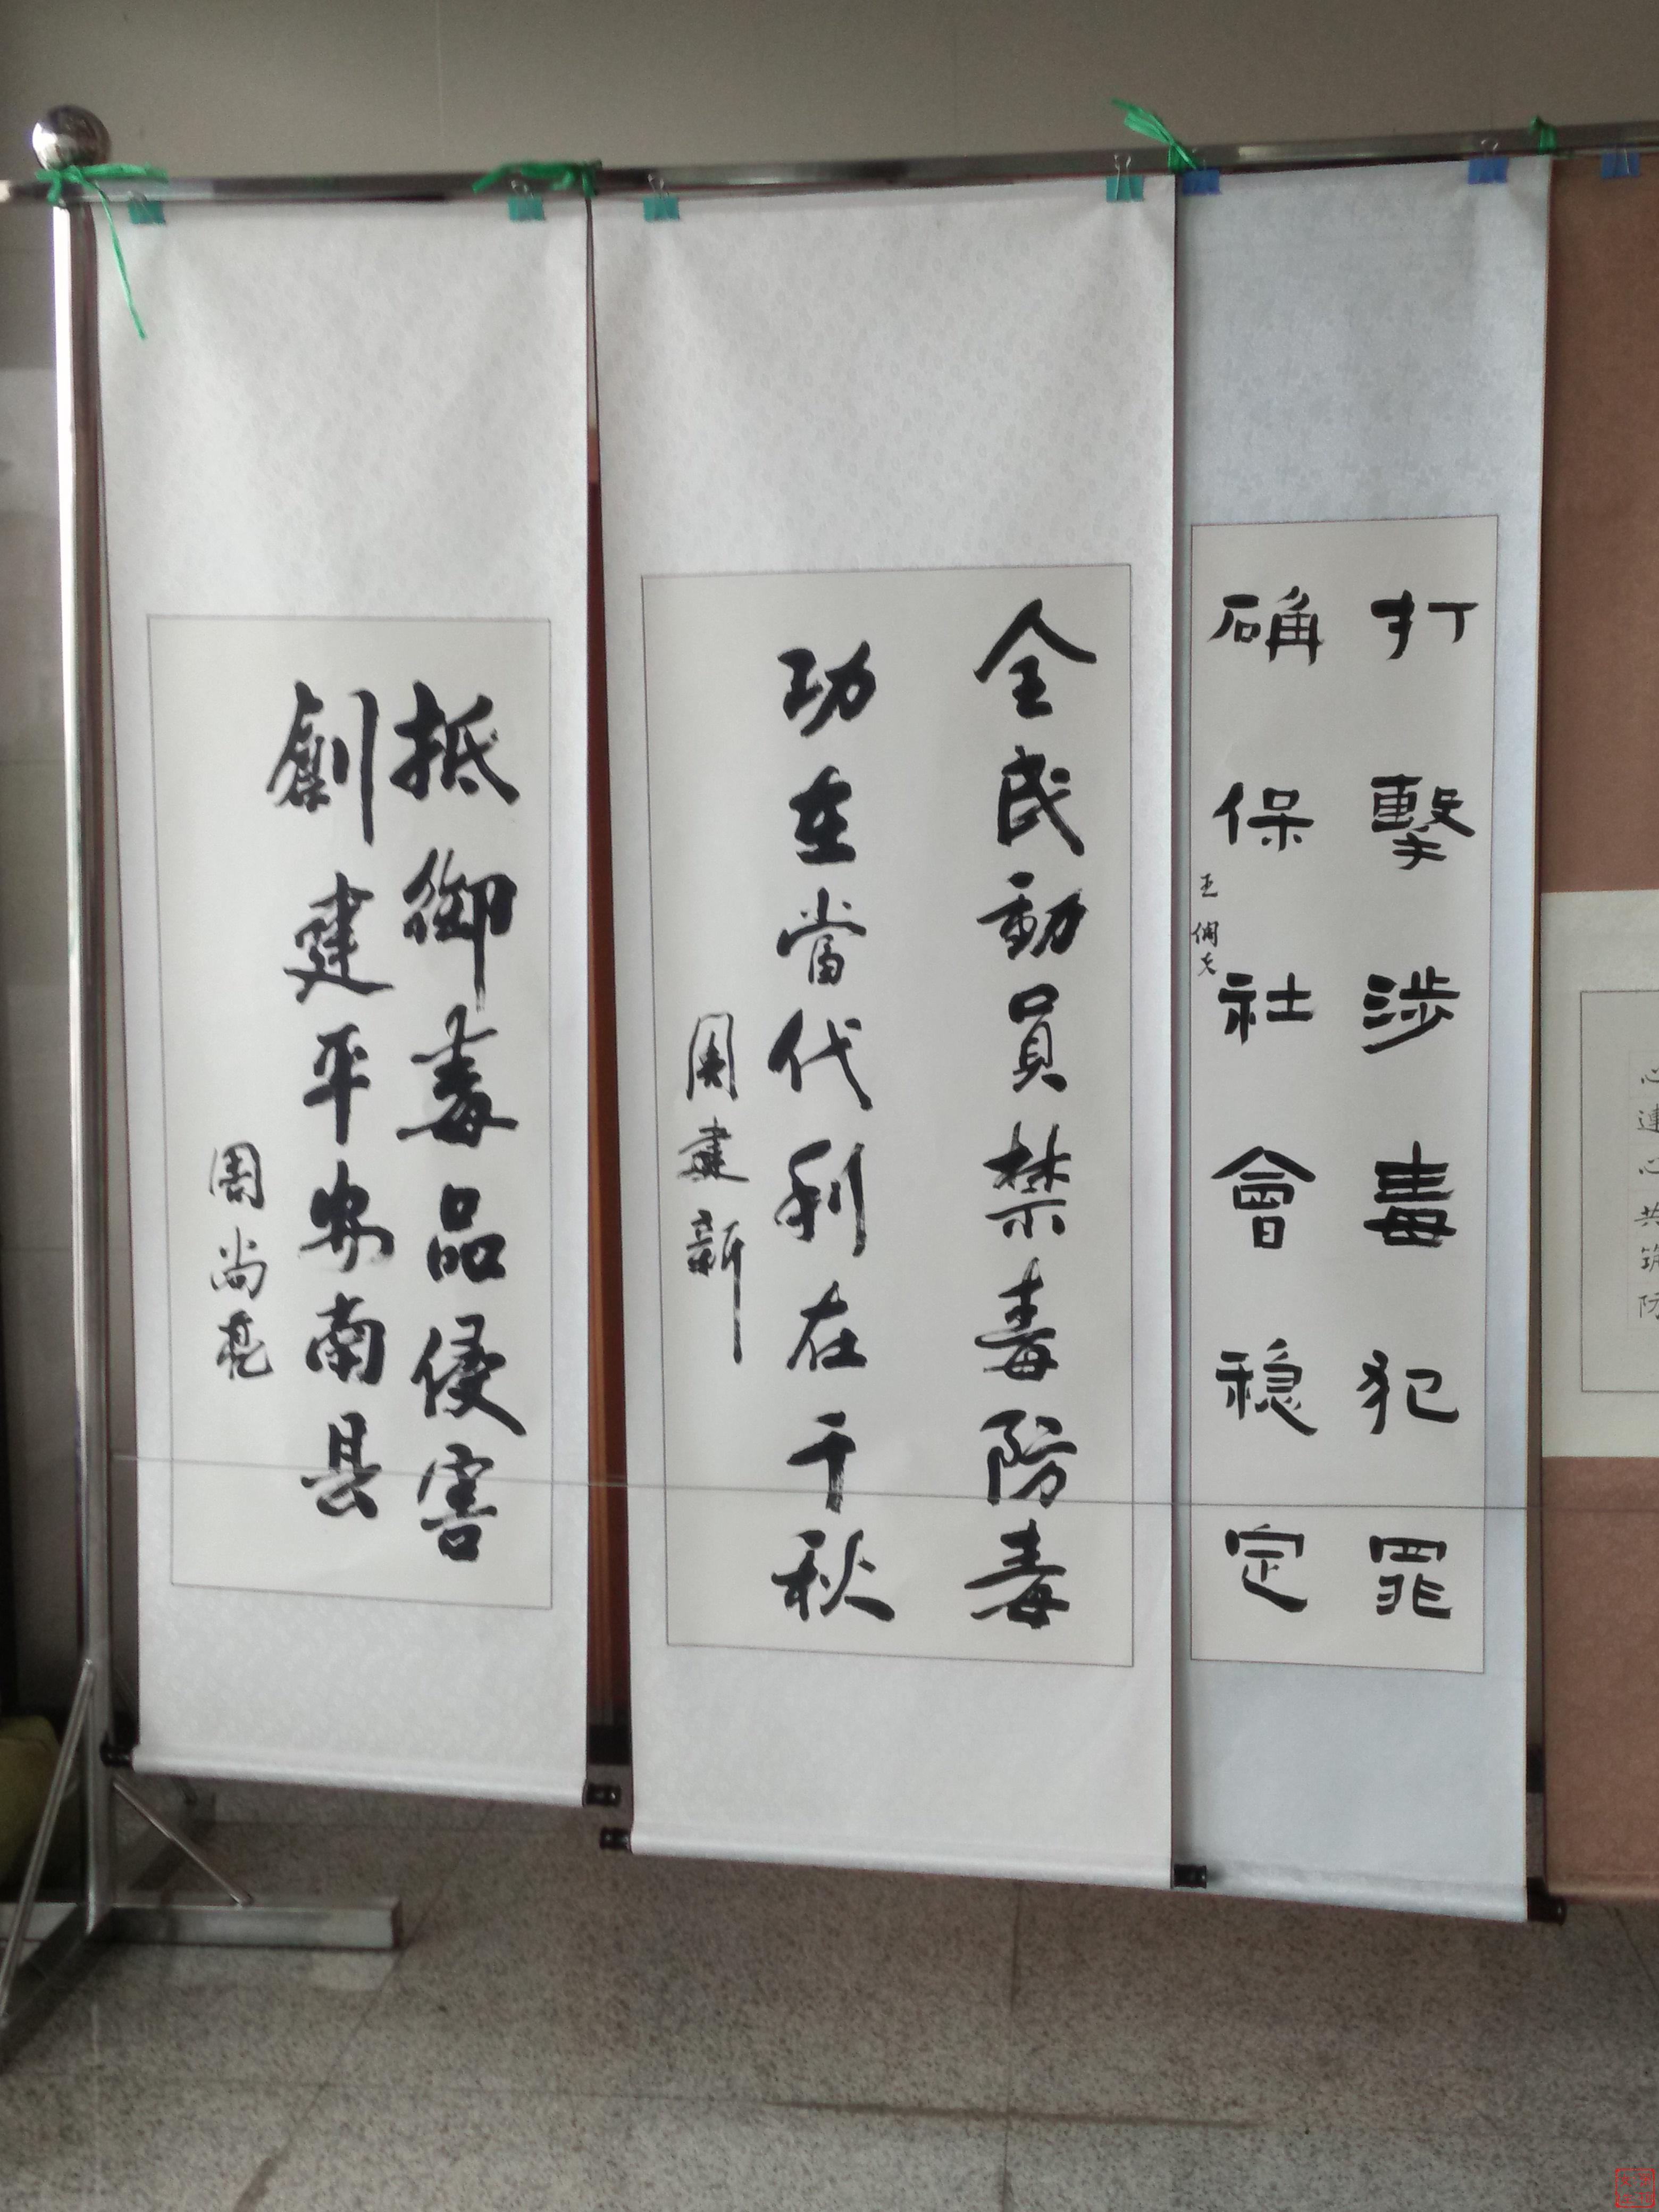 打擊涉毒犯罪
确保社會稳定
全民動員禁毒防毒
功在當代利在千秋
周建新
抵御毒品侵害
創建平安南县
周尚亮
心連心共筑防